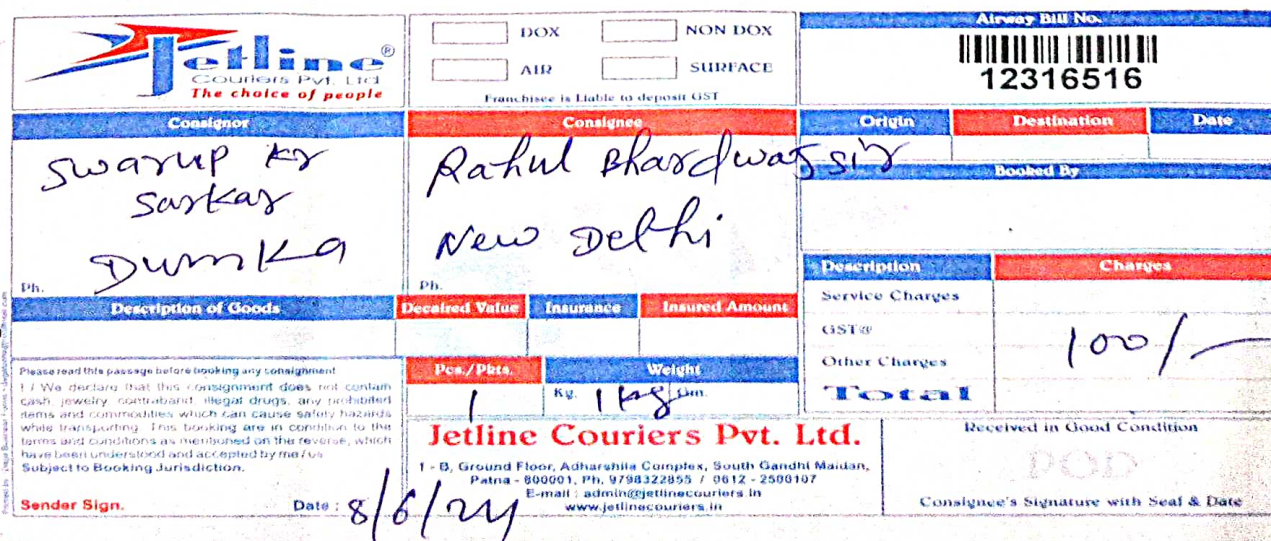 Jetline®
Couriers Pvt. Ltd
The choice of people
DOX
NON DOX
AIR
SURFACE
Franchisee is Liable to deposit GST
Airway Bill No.
12316516
Consignor
Swarup kr
Sarkar
Dumka
Ph.
Consignee
Rahul Bhardwaj sir
New Delhi
Ph.
Origin
Destination
Date
Booked By
Description
Charges
Service Charges
GST@
Other Charges
100/-
Total
Description of Goods
Decaired Value
Insurance
Insured Amount
Pcs./Pkts.
Weight
1
Kg.
1 kg
Gm.
Please read this passage before booking any consignment
I / We declare that this consignment does not contain
cash, jewelry, contraband, illegal drugs, any prohibited
items and commodities which can cause safety hazards
while transporting. This booking are in condition to the
terms and conditions as mentioned on the reverse, which
have been understood and accepted by me / us
Subject to Booking Jurisdiction.
Sender Sign.
Date : 8/6/24
Jetline Couriers Pvt. Ltd.
1 - B, Ground Floor, Adharshila Complex, South Gandhi Maidan,
Patna - 800001, Ph. 9798322855 / 0612 - 2500107
E-mail : admin@jetlinecouriers.in
www.jetlinecouriers.in
Received in Good Condition
POD
Consignee's Signature with Seal & Date